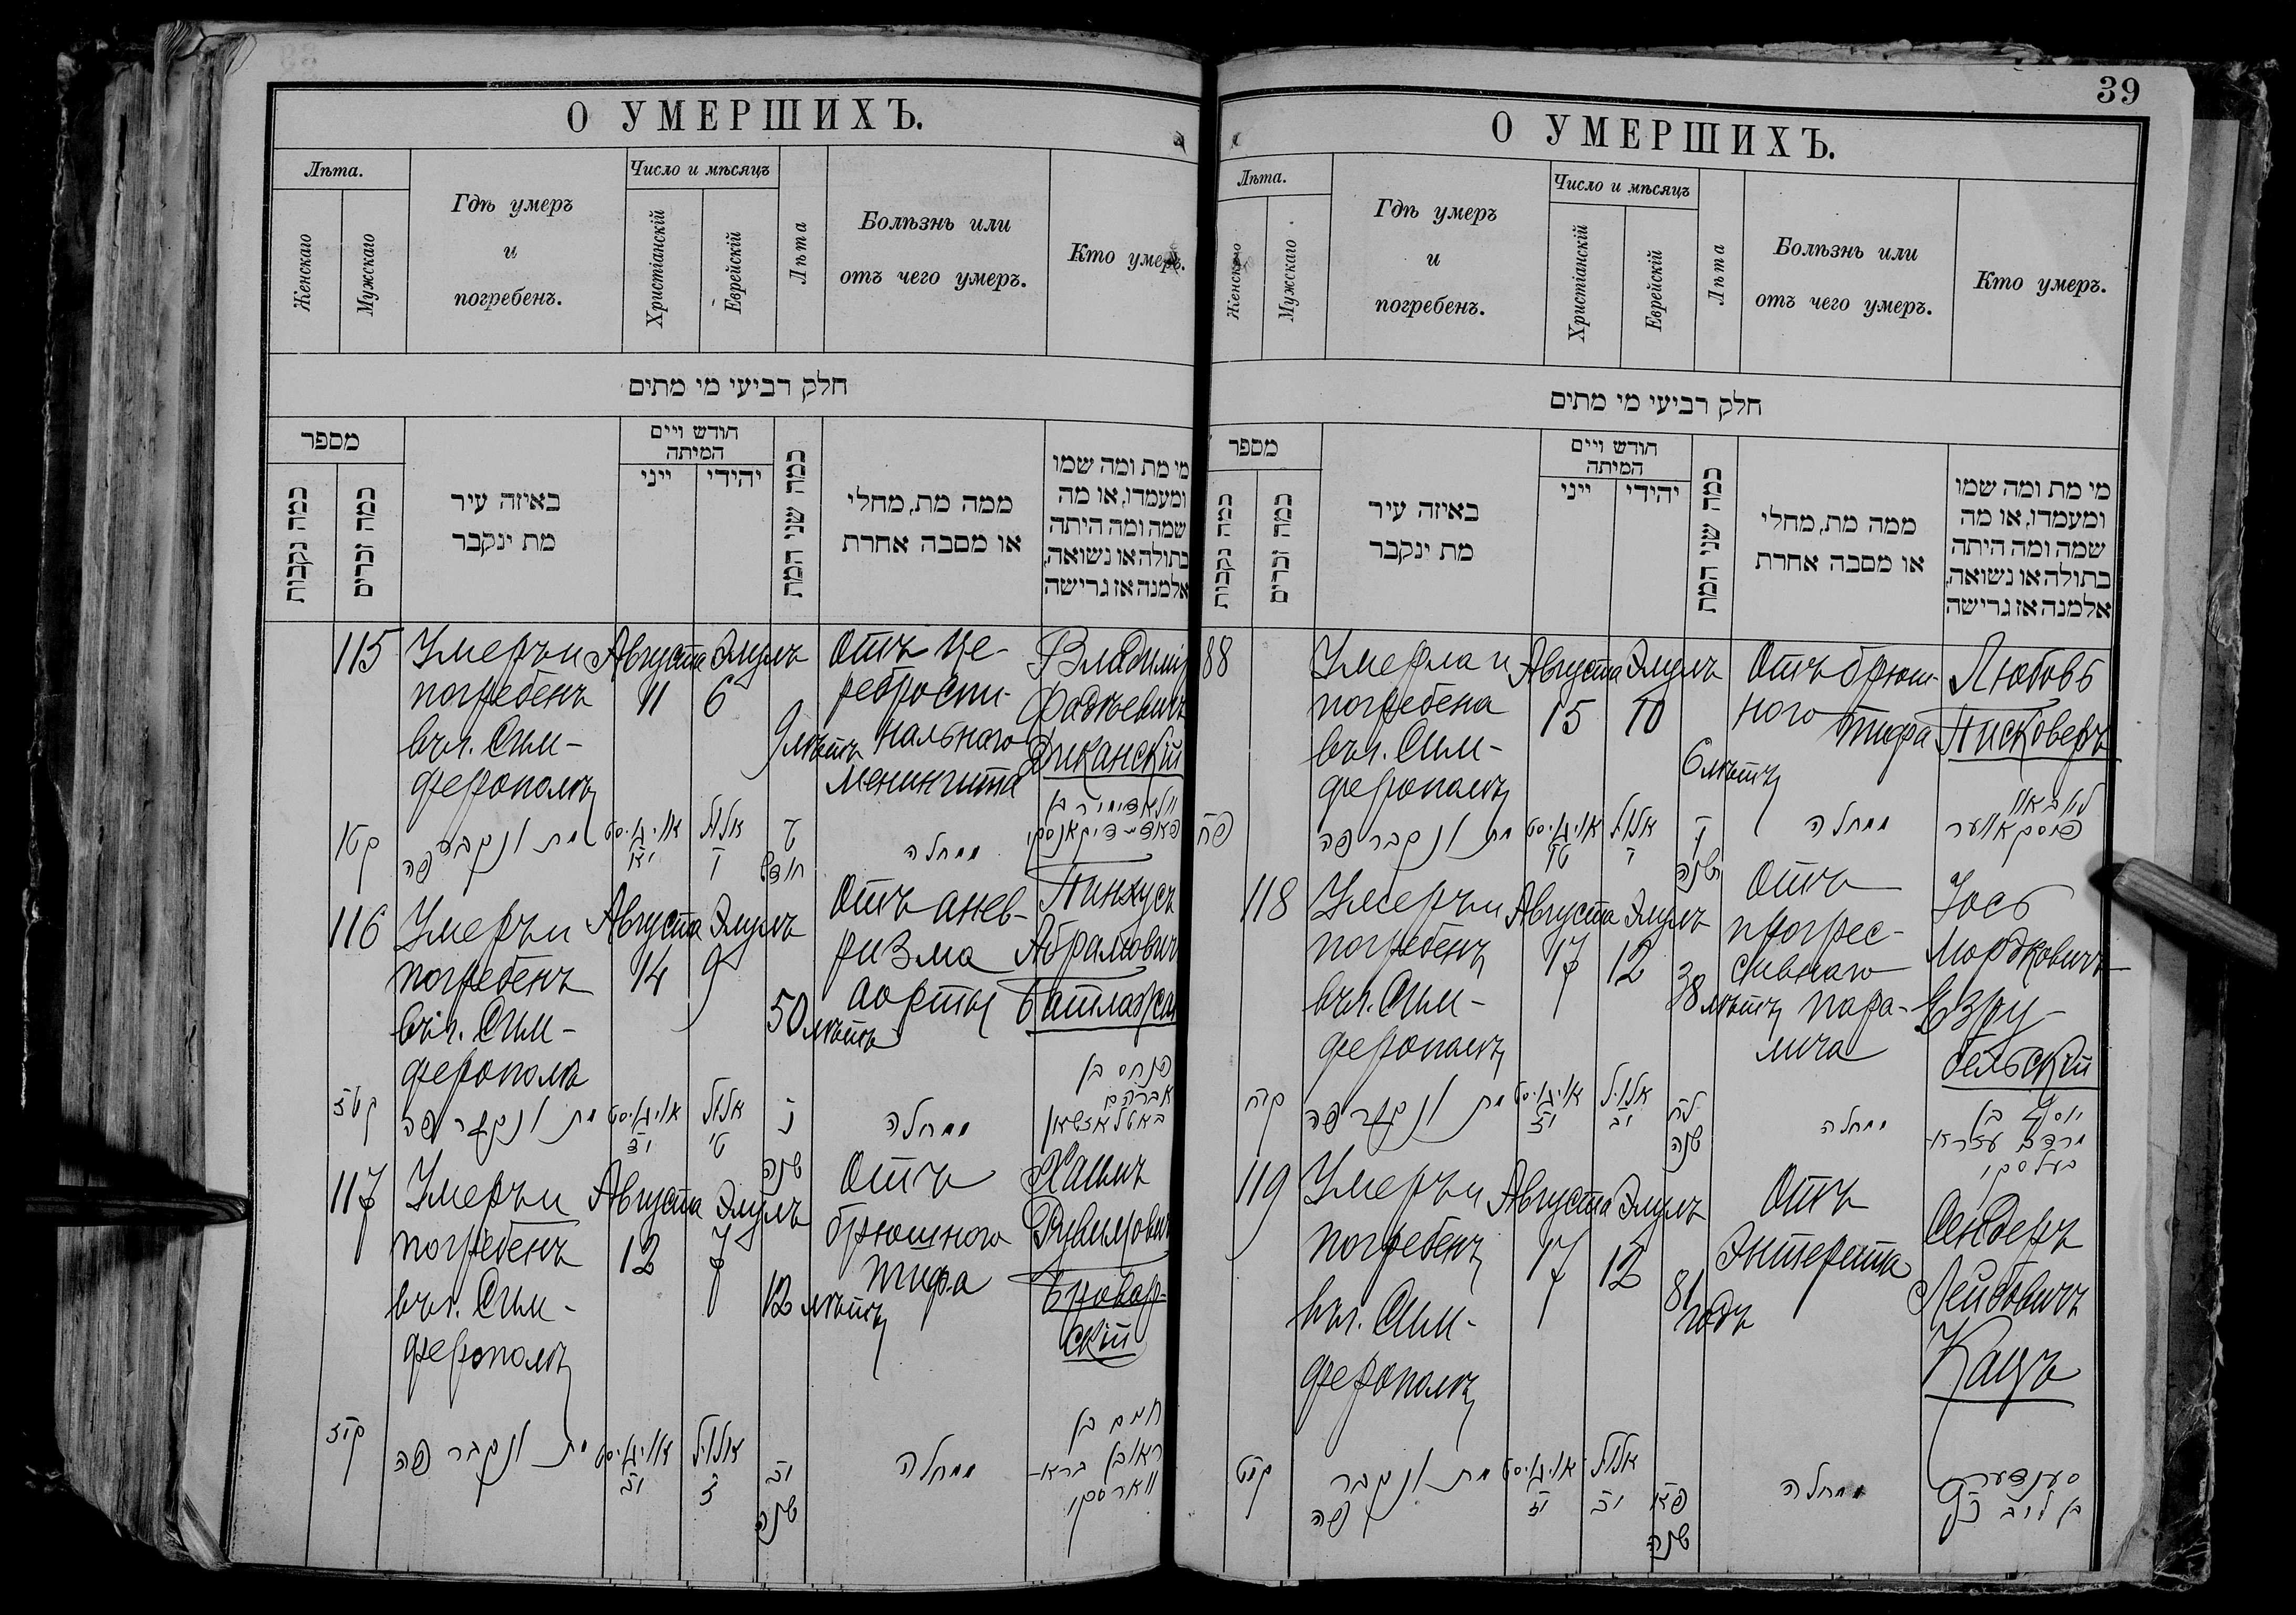 О УМЕРШИХЪ.
Лѣта.
Женскаго
Мужскаго
Гдѣ умеръ
и
погребенъ.
Число и мѣсяцъ
Христіанскій
Еврейскій
Лѣта
Болѣзнь или
отъ чего умеръ.
Кто умеръ.
חלק רביעי מי מתים
מספר
כמה נקבות
כמה זכרים
באיזה עיר
מת ינקבר
חודש ויים
המיתה
ייני
יהידי
כמה שני המת
ממה מת, מחלי
או מסבה אחרת
מי מת ומה שמו
ומעמדו, או מה
שמה ומה היתה
בתולה או נשואה,
אלמנה אז גרישה
115
Умеръ и
погребенъ
въ г. Сим-
ферополѣ
Августа
11
Элулъ
6
9 лѣтъ
Отъ це-
реброспи-
нальнаго
менингита
Владиміръ
Фадѣевичъ
Диканскій
קטו
מת ונקבר פה
אויגוסט
יא
אלול
ו
ט
חדש
מחלה
וולאדימיר בן
פאדיי דיקאנסקי
116
Умеръ и
погребенъ
въ г. Сим-
ферополѣ
Августа
14
Элулъ
9
50 лѣтъ
Отъ анев-
ризма
аорты
Пинхусъ
Абрамовичъ
קטז
מת ונקבר פה
אויגוסט
יד
אלול
טי
נ
שנה
מחלה
פנחס בן
אברהם
באטלאזשאן
117
Умеръ и
погребенъ
въ г. Сим-
ферополѣ
Августа
12
Элулъ
7
12 лѣтъ
Отъ
брюшного
тифа
Хаимъ
Рувимовичъ
קיז
מת ונקבר פה
אויגוסט
יב
אלול
ז
יב
שנה
מחלה
חיים בן
ראובן ברא-
ווארסקי
39
О УМЕРШИХЪ.
Лѣта.
Женскаго
Мужскаго
Гдѣ умеръ
и
погребенъ.
Число и мѣсяцъ
Христіанскій
Еврейскій
Лѣта
Болѣзнь или
отъ чего умеръ.
Кто умеръ.
חלק רביעי מי מתים
מספר
כמה נקבות
כמה זכרים
באיזה עיר
מת ינקבר
חודש ויים
המיתה
ייני
יהידי
כמה שני המת
ממה מת, מחלי
או מסבה אחרת
מי מת ומה שמו
ומעמדו, או מה
שמה ומה היתה
בתולה או נשואה,
אלמנה אז גרישה
88
Умерла и
погребена
въ г. Сим-
ферополѣ
Августа
15
Элулъ
10
6 лѣтъ
Отъ брюш-
ного
тифа
Любовь
Писковеръ
פח
מת ונקבר פה
אויגוסט
טו
אלול
י
ו
שנה
מחלה
ליובאוו
פיסקאווער
118
Умеръ и
погребенъ
въ г. Сим-
ферополѣ
Августа
17
Элулъ
12
38 лѣтъ
Отъ
прогрес-
сивнаго
пара-
лича
Іось
Мордковичъ
Езру-
бельскій
קיח
מת ונקבר פה
אויגוסט
יז
אלול
יב
לח
שנה
מחלה
יוסף בן
מרדכי עזרא-
בעלסקי
119
Умеръ и
погребенъ
въ г. Сим-
ферополѣ
Августа
17
Элулъ
12
81
годъ
Отъ
Энтерита
Сендеръ
Лейбовичъ
Кацъ
קיט
מת ונקבר
פה
אויגוסט
יז
אלול
יב
פא
שנה
מחלה
סענדער
בן ליב כץ